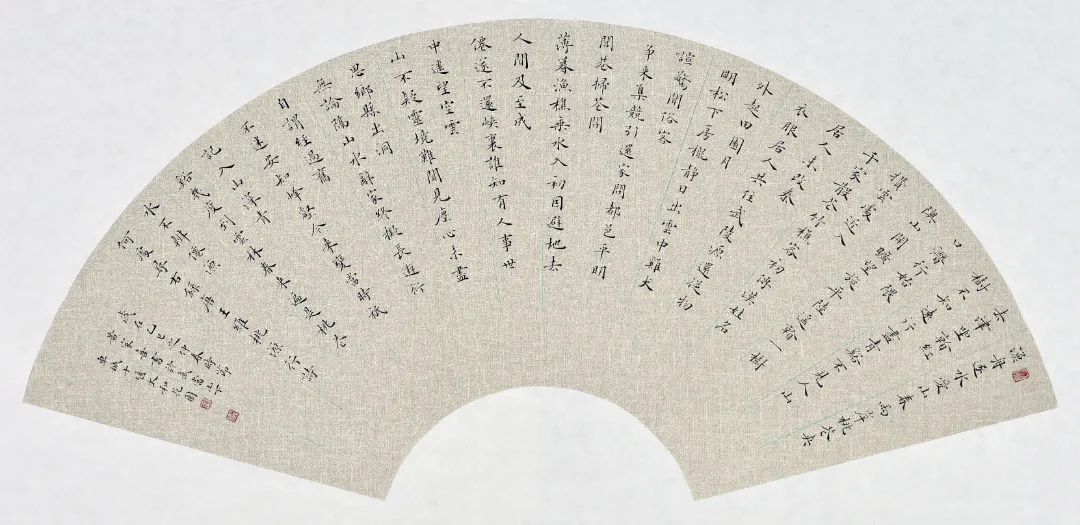 漁舟逐水愛山春兩岸桃花夾
古津坐看紅
樹不知遠行盡青谿不見人山
口潛行始隈
隩山開曠望旋平陸遥看一樹
攢雲處近入
千家散花竹樵客初傳漢姓名
居人未改秦
衣服居人共住武陵源還從物
外起田園月
明松下房櫳靜日出雲中雞犬
諠驚聞俗客
爭來集競引還家問都邑平明
閭巷掃花開
薄暮漁樵乘水入初因避地去
人間及至成
僊遂不還峽裏誰知有人事世
中遥望空雲
山不疑靈境難聞見塵心未盡
思鄉縣出洞
無論隔山水辭家終擬長遊衍
自謂經過舊
不迷安知峰壑今來變當時秖
記入山深青
谿幾度到雲林春來遍是桃花
水不辨僊源
何處尋右錄唐王維桃源行詩
歲在乙巳之仲春時節
書於鳳凰山下
東城十樓太和花園